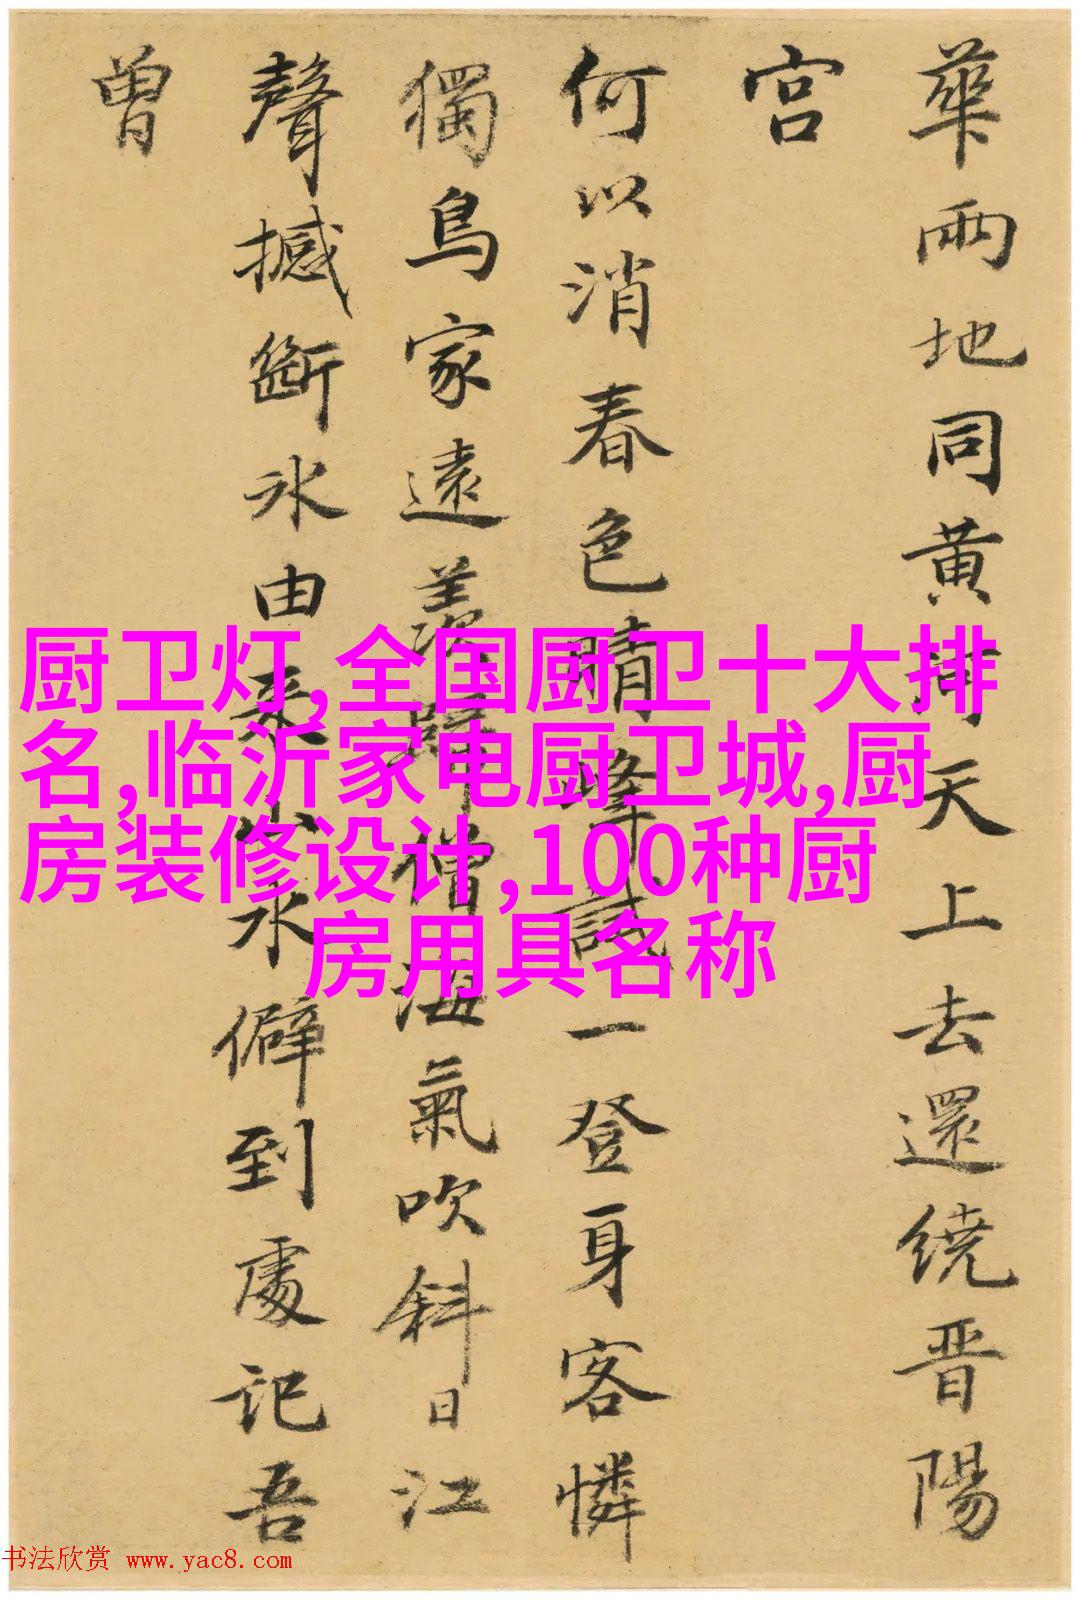 華兩地同黄河天上去還繞晋陽
宫
何以消春色晴峰試一登身客憐
獨鳥家遠羨歸僧海氣吹斜日江
聲撼斷氷由来山水僻到處記吾
曾
厨卫灯,全国厨卫十大排
名,临沂家电厨卫城,厨
房装修设计,100种厨
房用具名称
书法欣赏 www.yac8.com